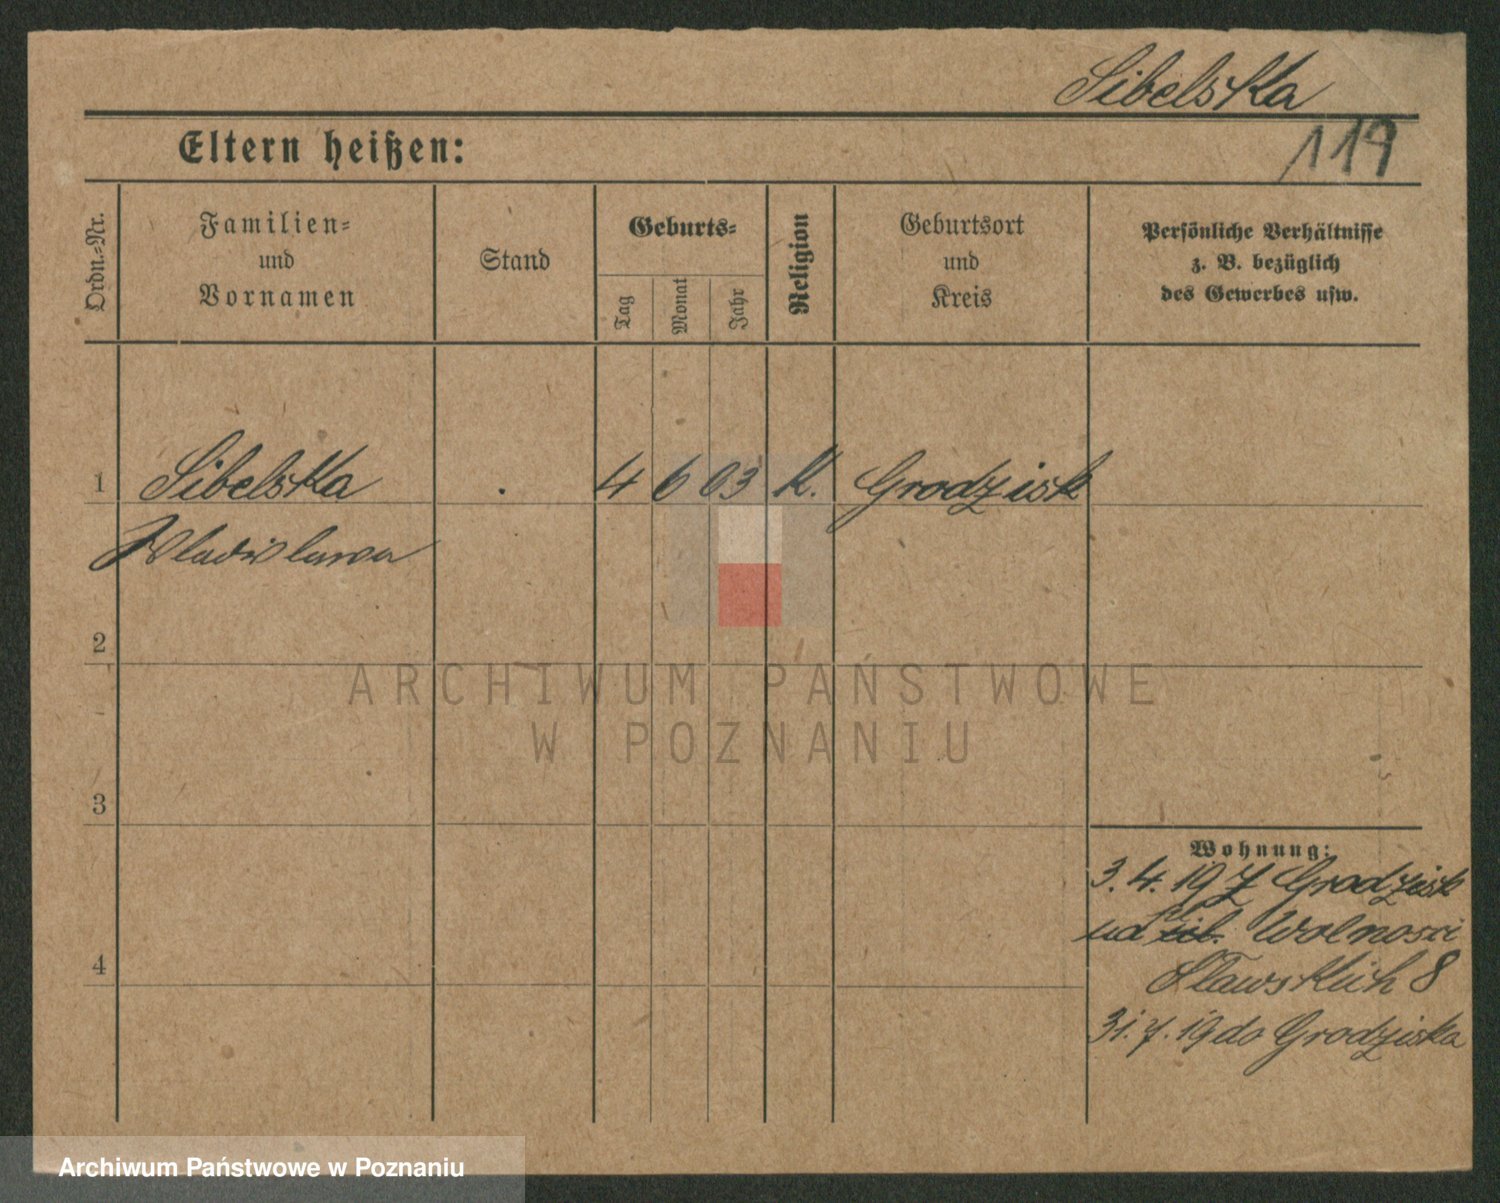 Sibelska
119
Eltern heißen:
Ordn.-Nr.
Familien- und Vornamen
Stand
Geburts-
Tag
Monat
Jahr
Religion
Geburtsort und Kreis
Persönliche Verhältnisse
z. B. bezüglich
des Gewerbes usw.
1 Sibelska . 4 6 03 K. Grodzisk
Wladislawa
2
3
4
Wohnung:
3. 4. 19 z Grodzisk
na pl. Wolnosci
Slawsklich 8
31. 7. 19 do Grodziska
ARCHIWUM PAŃSTWOWE
W POZNANIU
Archiwum Państwowe w Poznaniu